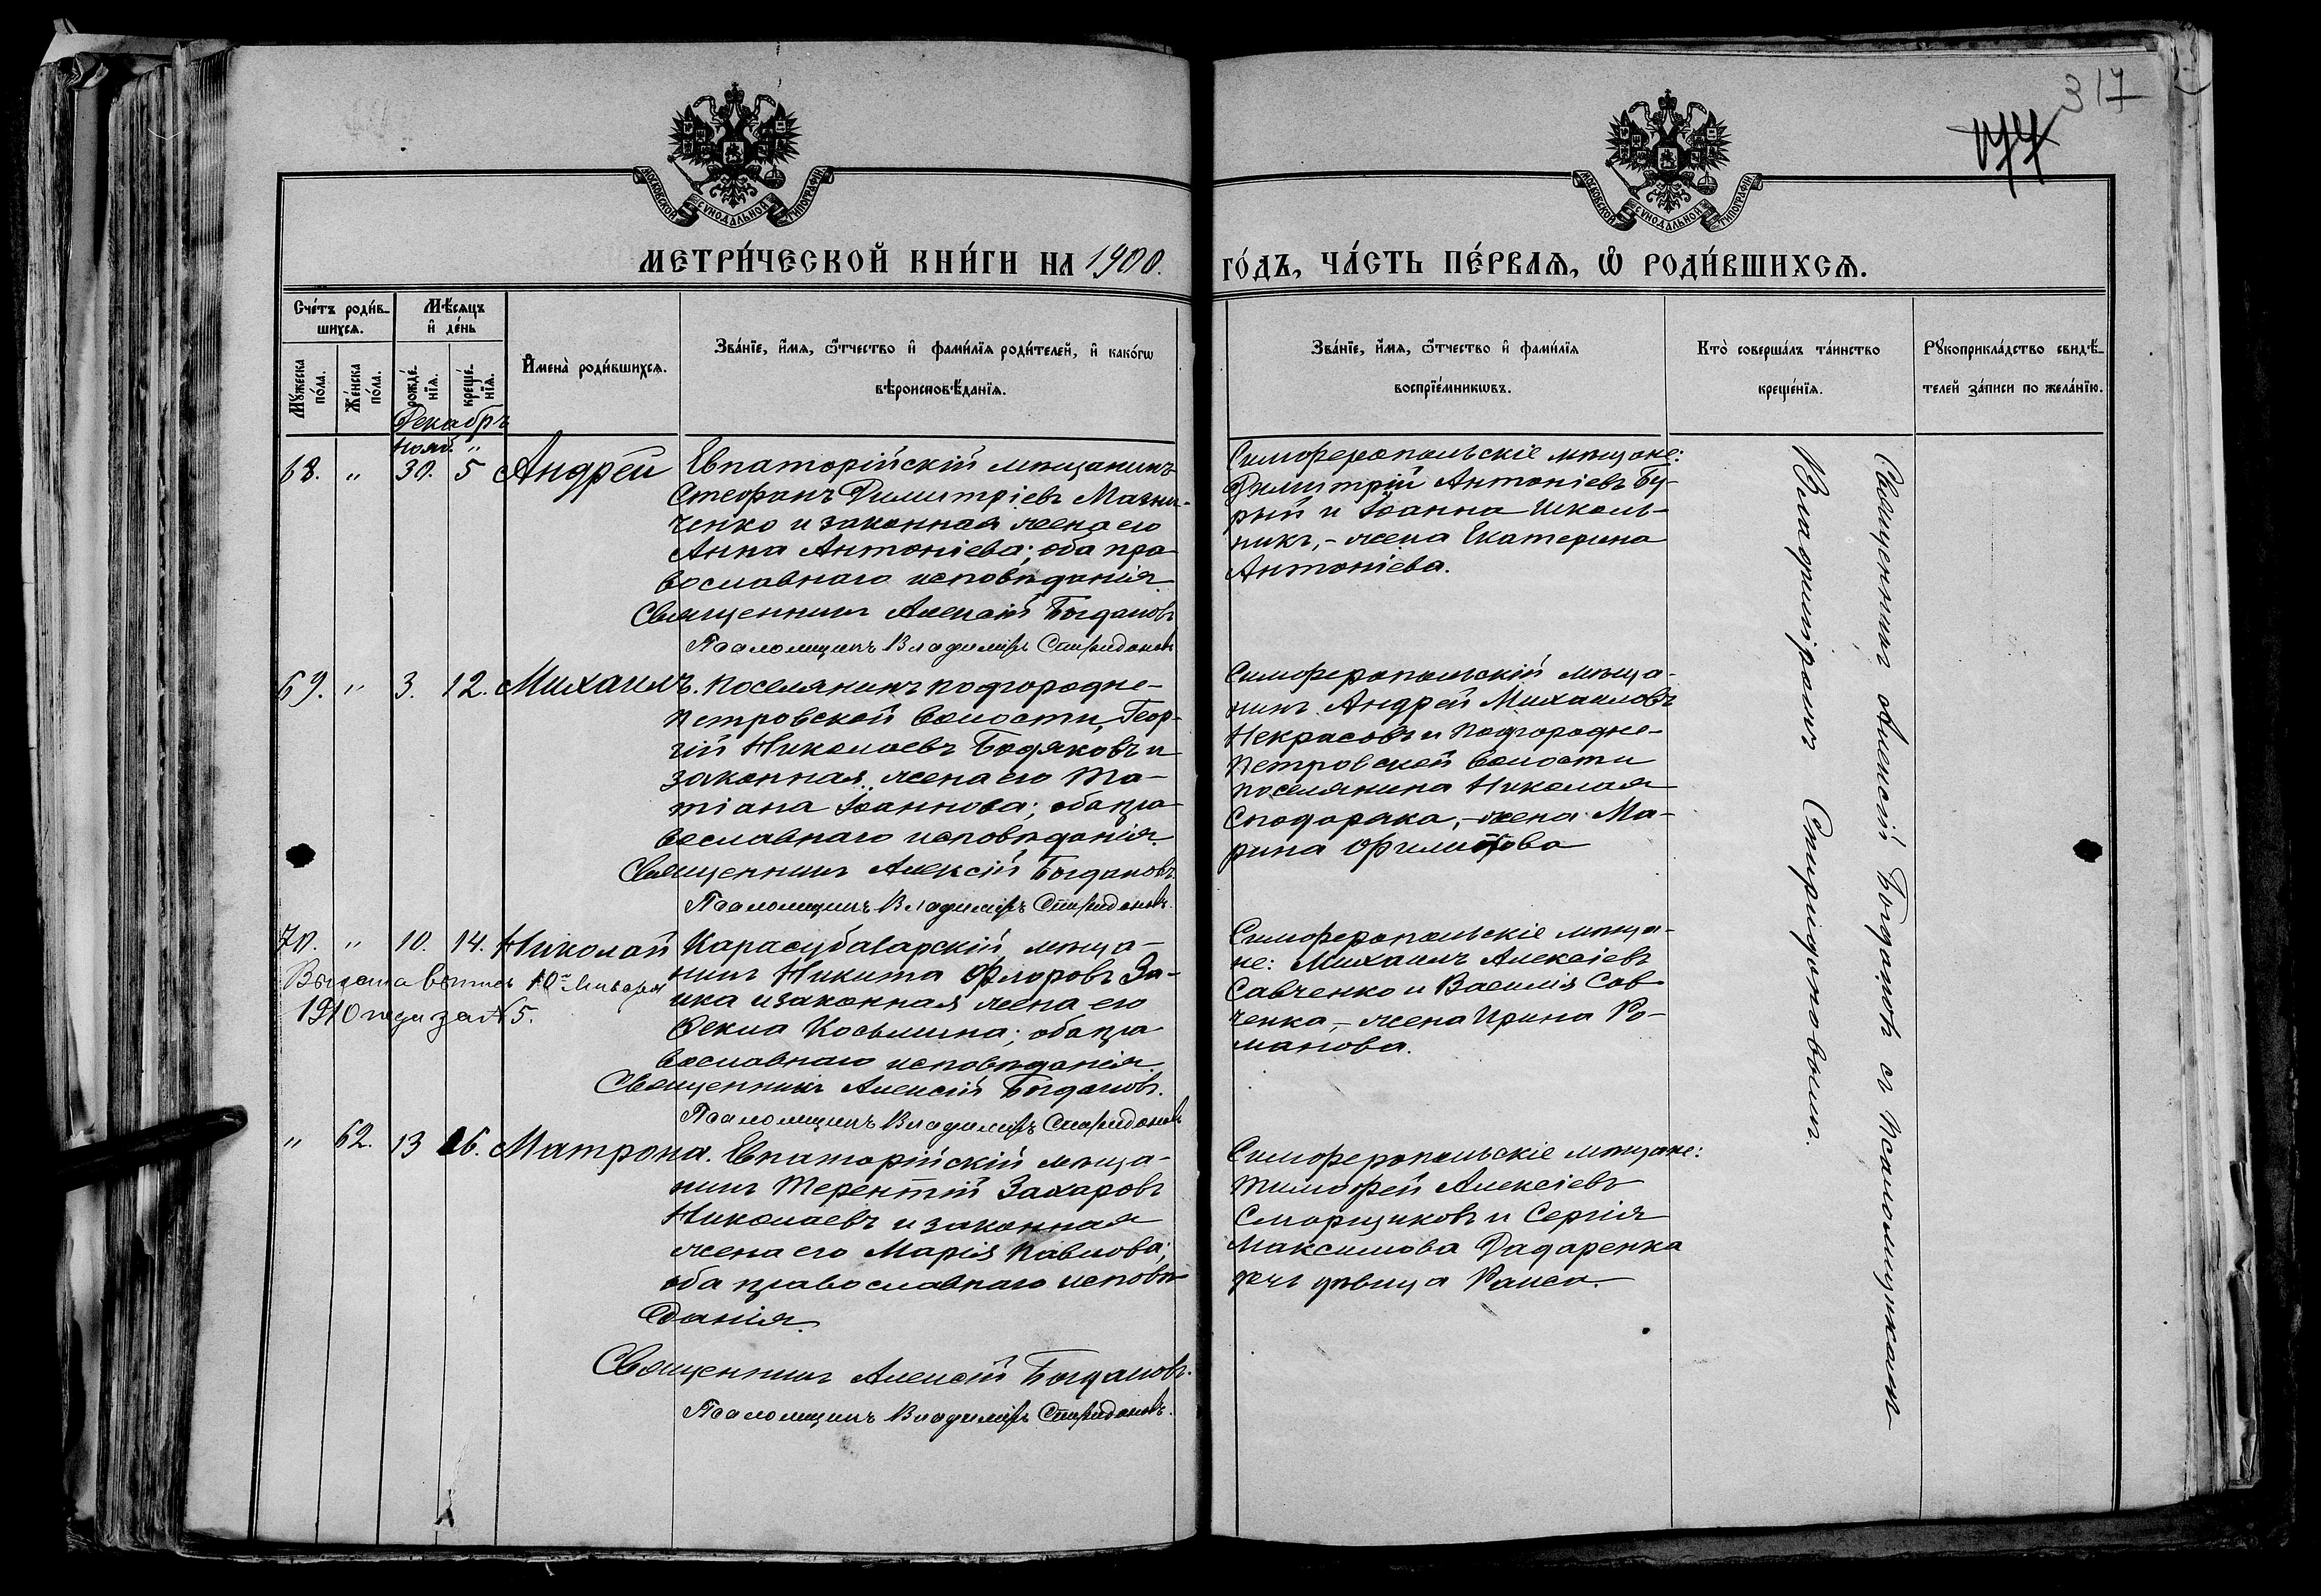 317
МОСКОВСКОЙ СѴНОДАЛЬНОЙ ТИПОГРАФІИ
МОСКОВСКОЙ СѴНОДАЛЬНОЙ ТИПОГРАФІИ
МЕТРИ́ЧЕСКОЙ КНИ́ГИ НА 1900.
ГО́ДЪ, ЧА́СТЬ ПЕ́РВАѦ, Ѡ РОДИ́ВШИХСѦ.
Сче́тъ роди́в-
шихсѧ.
Мѣ́сѧцъ
и҆ де́нь
Мꙋжеска
по́ла.
Же́нска
по́ла.
рожде́-
нїѧ.
креще́-
нїѧ.
И҆мена̀ роди́вшихсѧ.
Зва́нїе, и҆́мѧ, ѻ҆́тчество и҆ фами́лїѧ роди́телей, и҆ како́гѡ
вѣроисповѣ́данїѧ.
Зва́нїе, и҆́мѧ, ѻ҆́тчество и҆ фами́лїѧ
воспрїе́мникѡвъ.
Кто̀ соверша́лъ та́инство
креще́нїѧ.
Рꙋкоприкла́дство свидѣ́-
телей за́писи по жела́нїю.
Декабрь
Нояб. "
68. " 30. 5 Андрей
Евпаторійскій мѣщанинъ
Стефанъ Димитріевъ Мазни-
ченко и законная жена его
Анна Антоніева; оба пра-
вославнаго исповѣданія
Священникъ Алексій Богдановъ
Псаломщикъ Владиміръ Спиридоновъ
Симферопольскіе мѣщане:
Димитрій Антоніевъ Бу-
рый и Іоанна Школь-
никъ, - жена Екатерина
Антоніева.
69. " 3. 12. Михаилъ.
Поселянинъ Подгородне-
Петровской волости, Геор-
гій Николаевъ Бодяковъ и
законная жена его Та-
тіана Іоаннова; оба пра-
вославнаго исповѣданія.
Священникъ Алексій Богдановъ.
Псаломщикъ Владиміръ Спиридоновъ.
Симферопольскій мѣща-
нинъ Андрей Михаиловъ
Некрасовъ и Подгородне-
Петровской волости
поселянина Николая
жена Ма-
рина
70. " 10. 14. Николай
Выдана выпись 10го Января
1910 года за № 5.
Карасубазарскій мѣща-
нинъ Никита Флоровъ За-
ика и законная жена его
Фекла Косьмина; оба пра-
вославнаго исповѣданія.
Священникъ Алексій Богдановъ.
Псаломщикъ Владиміръ Спиридоновъ
Симферопольскіе мѣща-
не: Михаилъ Алексіевъ
Савченко и Василія Сав-
ченка, - жена Ирина Ро-
манова.
" 62. 13 16. Матрона.
Евпаторійскій мѣща-
нинъ Терентій Захаровъ
Николаевъ и законная
жена его Марія Павлова;
оба православнаго исповѣ-
данія.
Священникъ Алексій Богдановъ.
Псаломщикъ Владиміръ Спиридоновъ.
Симферопольскіе мѣщане:
Тимофей Алексіевъ
Сморщиковъ и Сергія
Максимова Дадаренка
дочь дѣвица Раиса.
Священникъ Алексій Богдановъ съ Псаломщикомъ
Владиміромъ Спиридоновымъ.